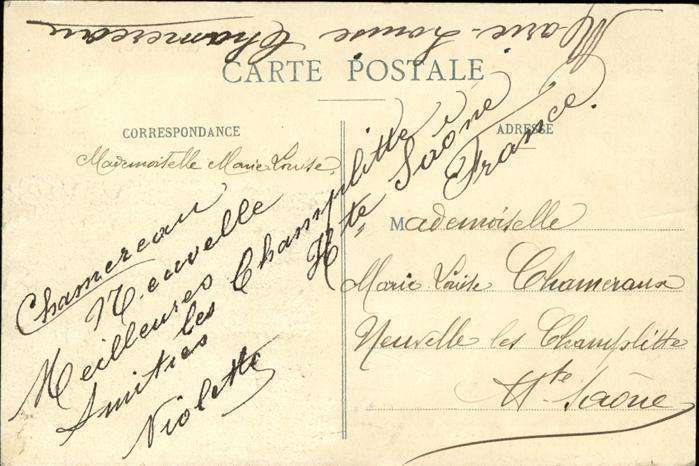 Marie-Louise Chamereau
CARTE POSTALE
CORRESPONDANCE
Mademoiselle Marie Louise.
Chamereau
Neuvelle les Champlitte
Hte Saône
France.
Meilleures
Amitiés
Violette
ADRESSE
Mademoiselle
Marie Louise Chameraux
Neuvelle les Champlitte
Hte Saône